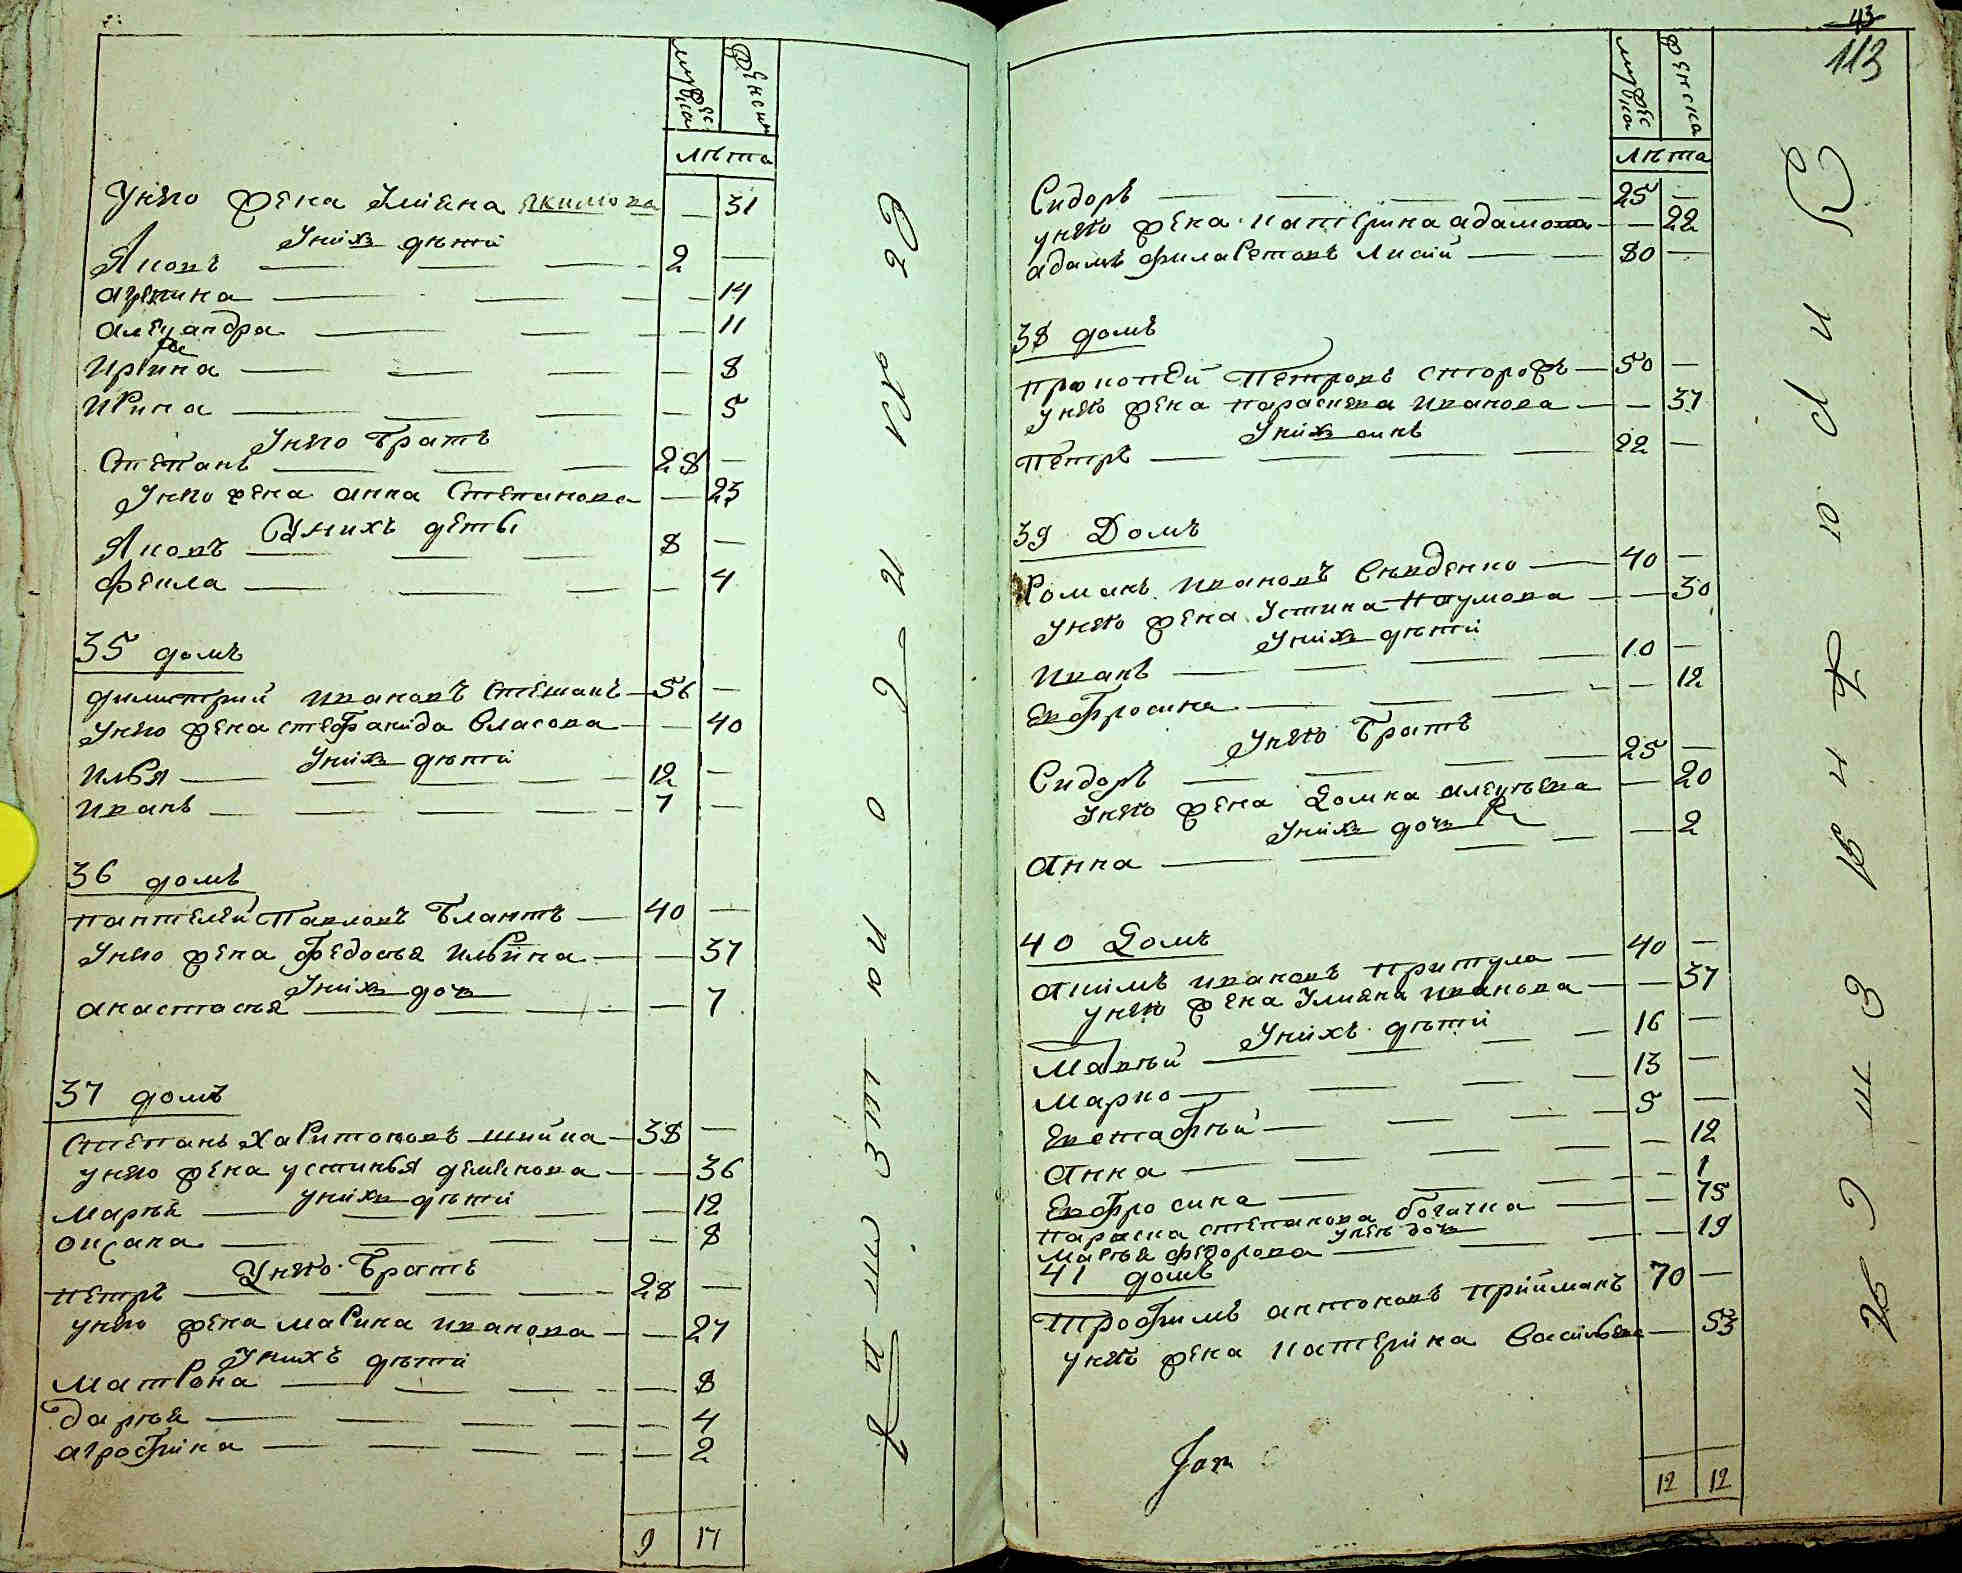 мужеска
женска
лѣта
Унего жена Улияна Якимова — 31
Уних дѣти
Яковъ — 2 —
агрепина — 14
алеѯандра — 11
Ирина — 8
Ирина — 5
Унего братъ
Степанъ — 28 —
Унего жена анна Степанова — 23
Унихъ дети
Яковъ — 8 —
Фекла — 4
35 домъ
димитрий ивановъ Степанъ — 56 —
унего жена стефанида власова — 40
Уних дѣти
Илья — 12 —
иванъ — 7 —
36 домъ
пантелей Павловъ — 40 —
унего жена федосья ильина — 37
Уних доч
анастасья — 7
37 домъ
степанъ харитоновъ шийка — 38 —
унего жена устинья деменкова — 36
уних дѣти
марья — 12
оксана — 8
Унего братъ
петръ — 28 —
унего жена марина иванова — 27
Унихъ дѣти
матрона — 8
дарья — 4
агрофина — 2
9 17
43
113
мужеска
женска
лѣта
Сидоръ — 25 —
унего жена катерина адамова — 22
адамъ филаретовъ лисий — 80 —
38 домъ
прокопей петровъ сторожъ — 50 —
унего жена параскева иванова — 37
Уних синъ
петръ — 22 —
39 Домъ
Романъ ивановъ Сѣвденко — 40 —
унего жена устина Наумова — 30
Уних дѣти
иванъ — 10 —
Евфросина — 12
Унего братъ
Сидоръ — 25 —
унего жена домка алеѯѣева — 20
Уних доч
анна — 2
40 Домъ
акимъ ивановъ притула — 40 —
унего жена Улияна иванова — 37
Унихъ дѣти
Матвѣй — 16 —
марко — 13 —
Евстафѣй — 5 —
анна — 12
Евфросина — 1
параска степанова богачка — 75
унея доч
марья федорова — 19
41 домъ
трофимъ антоновъ прийманъ 70 —
унего жена катерина васильева — 53
12 12